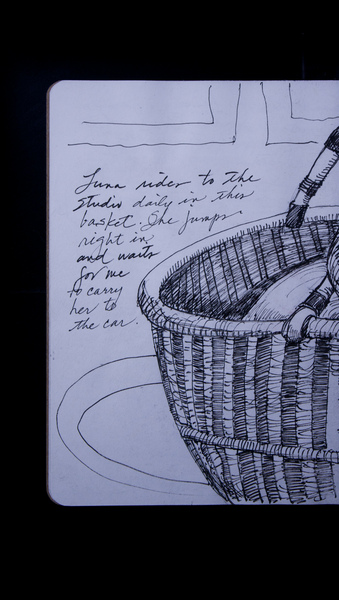 Luna rides to the
studio daily in this
basket. She jumps
right in
and waits
for me
to carry
her to
the car.